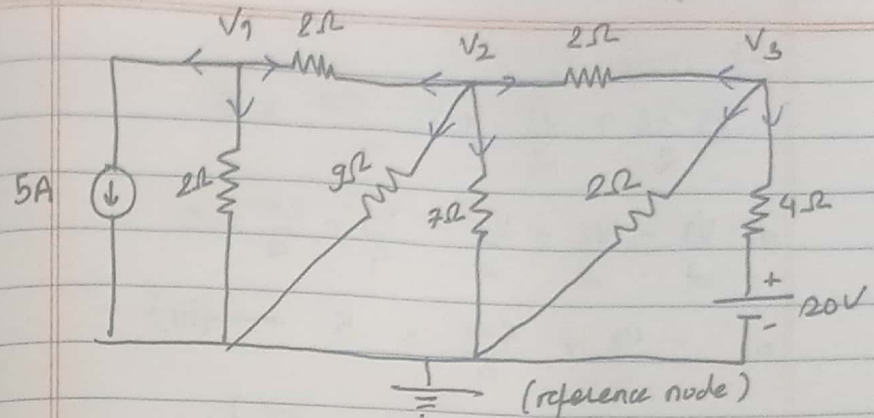 V1 2Ω V2 2Ω V3
5A 2Ω 9Ω 7Ω 2Ω 4Ω
+
20V
-
(reference node)